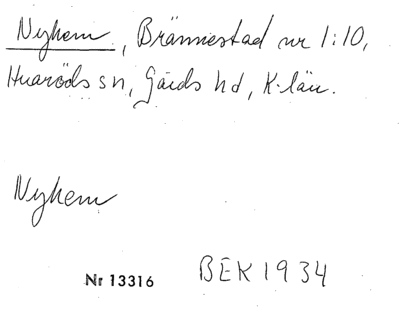 Nyhem, Brännestad nr 1:10,
Huaröds sn, Gärds hd, K-län.
Nyhem
Nr 13316 BEK 1934